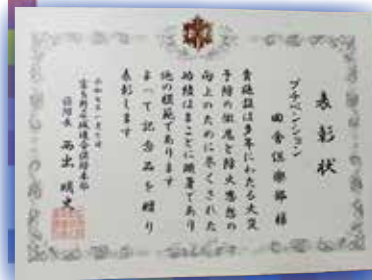 表彰状
プチペンション
田舎倶楽部 様
貴施設は多年にわたる火災
予防の徹底と防火思想の
向上のために尽くされた
功績はまことに顕著であり
他の模範であります
よって記念品を贈り
表彰します
富良野広域連合消防本部
消防長